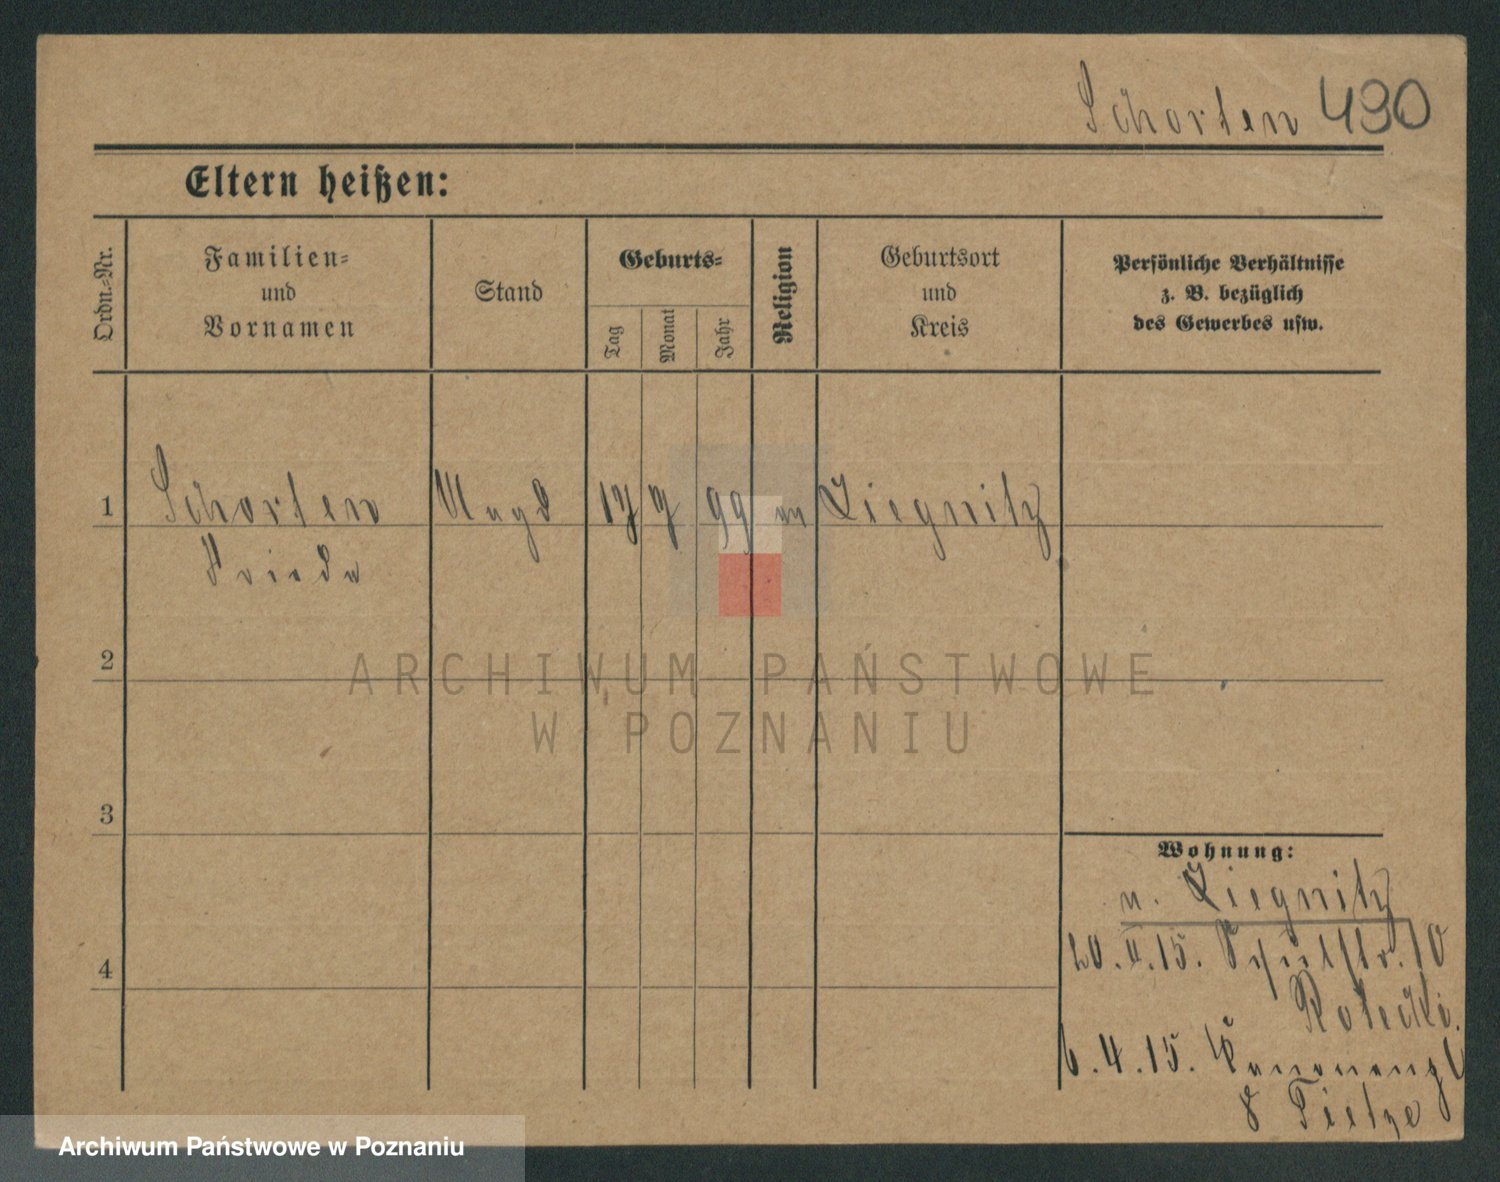 Schorten 490
Eltern heißen:
Ordn.-Nr.
Familien-
und
Vornamen
Stand
Geburts-
Tag
Monat
Jahr
Religion
Geburtsort
und
Kreis
Persönliche Verhältnisse
z. B. bezüglich
des Gewerbes usw.
1 Schorten Magd 17 9 99 Liegnitz
Frieda
2
3
4
Wohnung:
n. Liegnitz
20. 15. 10
6.4.15. Kanonenpl
8 Tietze
ARCHIWUM PAŃSTWOWE
W POZNANIU
Archiwum Państwowe w Poznaniu